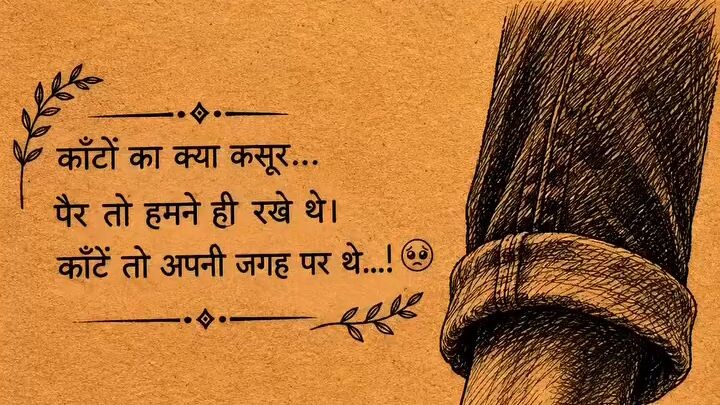 काँटों का क्या कसूर...
पैर तो हमने ही रखे थे।
काँटें तो अपनी जगह पर थे...! 🥺